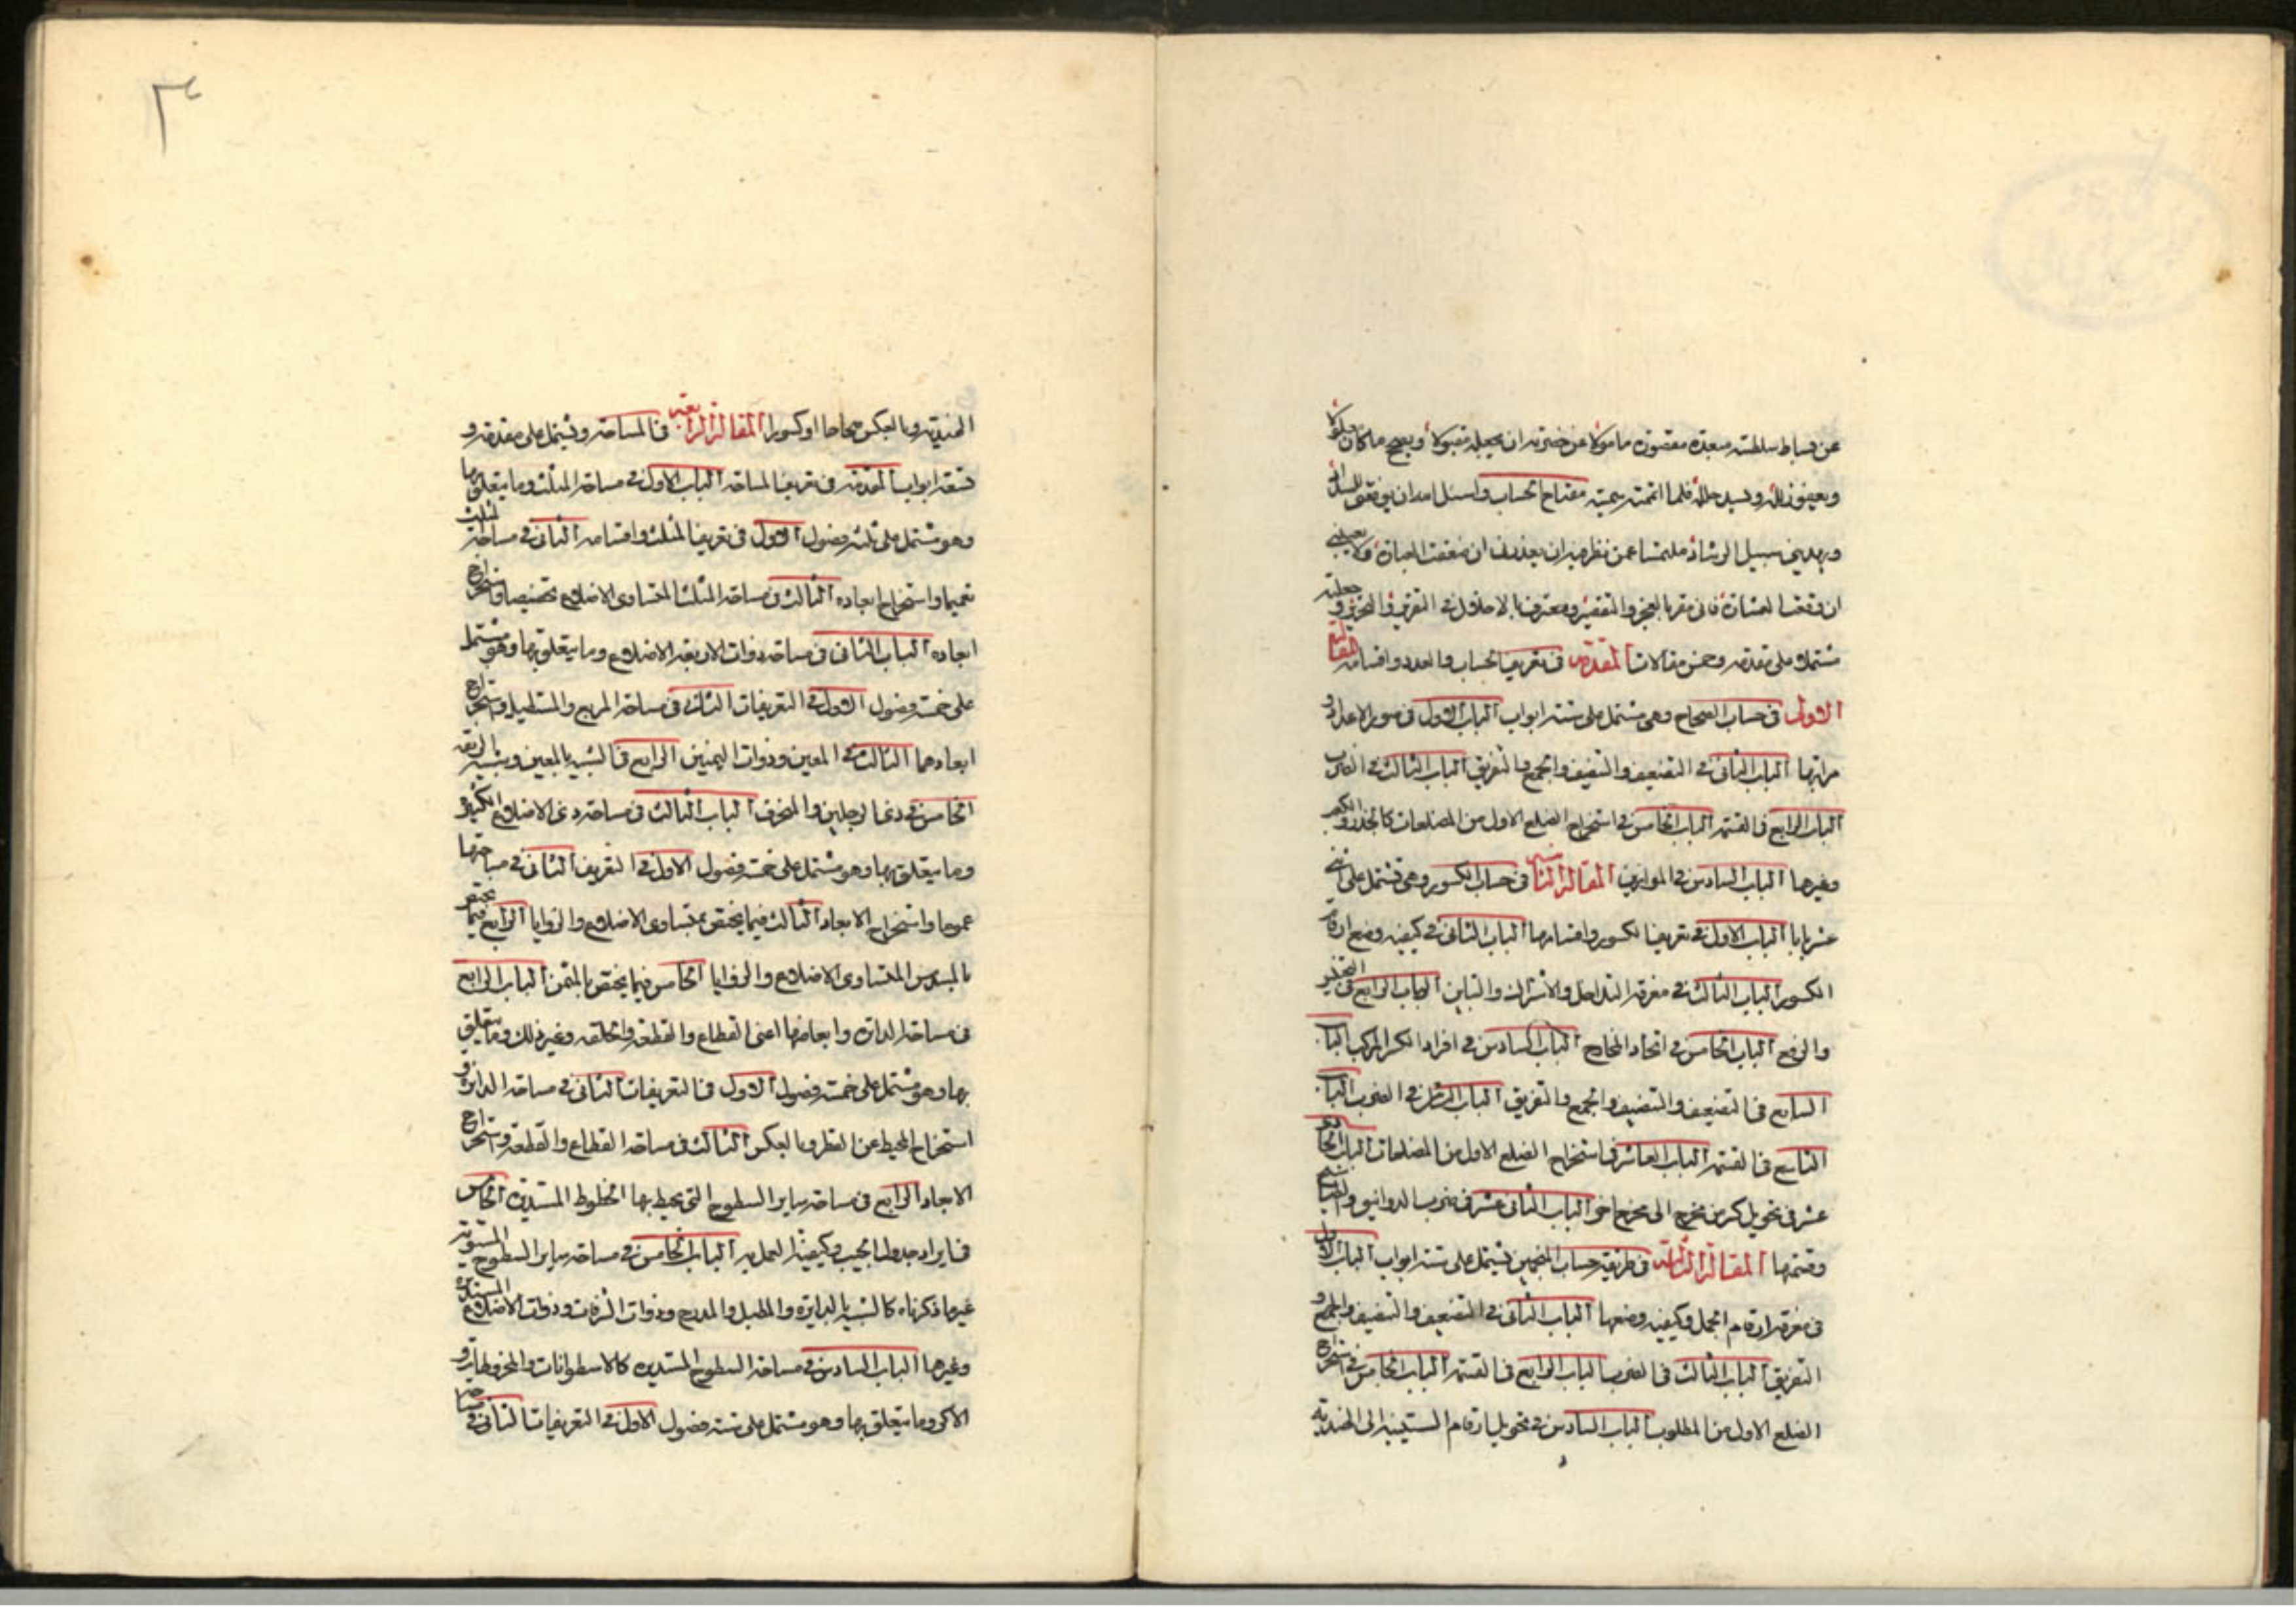 عن بساط سلطنته مبعدة مقصورة مامولا عن حضرته ان يجعله مقبولا وبعج ما كان
وبعيون زلله ويسد خلله فلما اتممته سميته مفتاح الحساب واسئل الله ان يوفقنى للسداد
ويهدينى سبيل الرشاد ملتمسا عمن نظر فيه ان يعذرنى ان ضعفت العبارة ولا يعيبنى
ان وقعت العثارة فانى مقر بالعجز والتقصير ومعترف بالاخلال فى التقرير والتحرير وجعلته
مشتملا على مقدمة وخمس مقالات المقدمة فى تعريف الحساب والعدد واقسامه المقالة
الاولى فى حساب الصحاح وهى مشتمل على ستة ابواب الباب الاول فى صور الاعداد و
مراتبها الباب الثانى فى التضعيف والتنصيف والجمع والتفريق الباب الثالث فى الضرب
الباب الرابع فى القسمة الباب الخامس فى استخراج الضلع الاول من المضلعات كالجذر والكعب
وغيرها الباب السادس فى الموازين المقالة الثانية فى حساب الكسور وهى تشتمل على اثنى
عشر بابا الباب الاول فى تعريف الكسور واقسامها الباب الثانى فى كيفية وضع ارقام
الكسور الباب الثالث فى معرفة التداخل والاشتراك والتباين الباب الرابع فى التجنيس
والرفع الباب الخامس فى اتحاد المخارج الباب السادس فى افراد الكسر المركب الباب
السابع فى التضعيف والتنصيف والجمع والتفريق الباب الثامن فى الضرب الباب
التاسع فى القسمة الباب العاشر فى استخراج الضلع الاول من المضلعات الباب الحادى
عشر فى تحويل كسر من مخرج الى مخرج اخر الباب الثانى عشر فى ضرب الدوانيق والطساسيج
وقسمتها المقالة الثالثة فى طريقة حساب المنجمين تشتمل على ستة ابواب الباب الاول
فى معرفة ارقام الجمل وكيفية وضعها الباب الثانى فى التضعيف والتنصيف والجمع و
التفريق الباب الثالث فى الضرب الباب الرابع فى القسمة الباب الخامس فى استخراج
الضلع الاول من المطلوب الباب السادس فى تحويل ارقام الستينية الى الهندية
٣
الهندية وبالعكس صحاحا او كسورا المقالة الرابعة فى المساحة وتشتمل على مقدمة و
تسعة ابواب المقدمة فى تعريف المساحة الباب الاول فى مساحة المثلث وما يتعلق بها
وهو مشتمل على ثلثة فصول الاول فى تعريف المثلث واقسامه الثانى فى مساحة المثلث
تعميما واستخراج ابعاده الثالث فى مساحة المثلث المتساوى الاضلاع تخصيصا واستخراج
ابعاده الباب الثانى فى مساحة ذوات الاربعة الاضلاع وما يتعلق بها وهو مشتمل
على خمسة فصول الاول فى التعريفات الثانى فى مساحة المربع والمستطيل واستخراج
ابعادهما الثالث فى المعين وذوات اليمينين الرابع فى الشبيه بالمعين وبشبيه الزنقة
الخامس فى ذى الرجلين والمنحرف الباب الثالث فى مساحة ذى الاضلاع الكثيرة
وما يتعلق بها وهو مشتمل على خمسة فصول الاول فى التعريف الثانى فى مساحتها
عموما واستخراج الابعاد الثالث فيما يختص بمتساوى الاضلاع والزوايا الرابع فيما يختص
بالمسدس المتساوى الاضلاع والزوايا الخامس فيما يختص بالمثمن الباب الرابع
فى مساحة الدائرة وابعاضها اعنى القطاع والقطعة والحلقة وغير ذلك وما يتعلق
بها وهو مشتمل على خمسة فصول الاول فى التعريفات الثانى فى مساحة الدايرة و
استخراج المحيط عن القطر وبالعكس الثالث فى مساحة القطاع والقطعة واستخراج
الابعاد الرابع فى مساحة ساير السطوح التى يحيط بها الخطوط المستديرة الخامس
فى ايراد جدول الجيب وكيفية العمل به الباب الخامس فى مساحة ساير السطوح المستوية
غير ما ذكرناه كالشبيه بالدايرة والمطبل والمدرج وذوات الشرفات وذوات الاضلاع المستديرة
وغيرها الباب السادس فى مساحة السطوح المستديرة كالاسطوانات والمخروطات و
الاكر وما يتعلق بها وهو مشتمل على ستة فصول الاول فى التعريفات الثانى فى مساحة